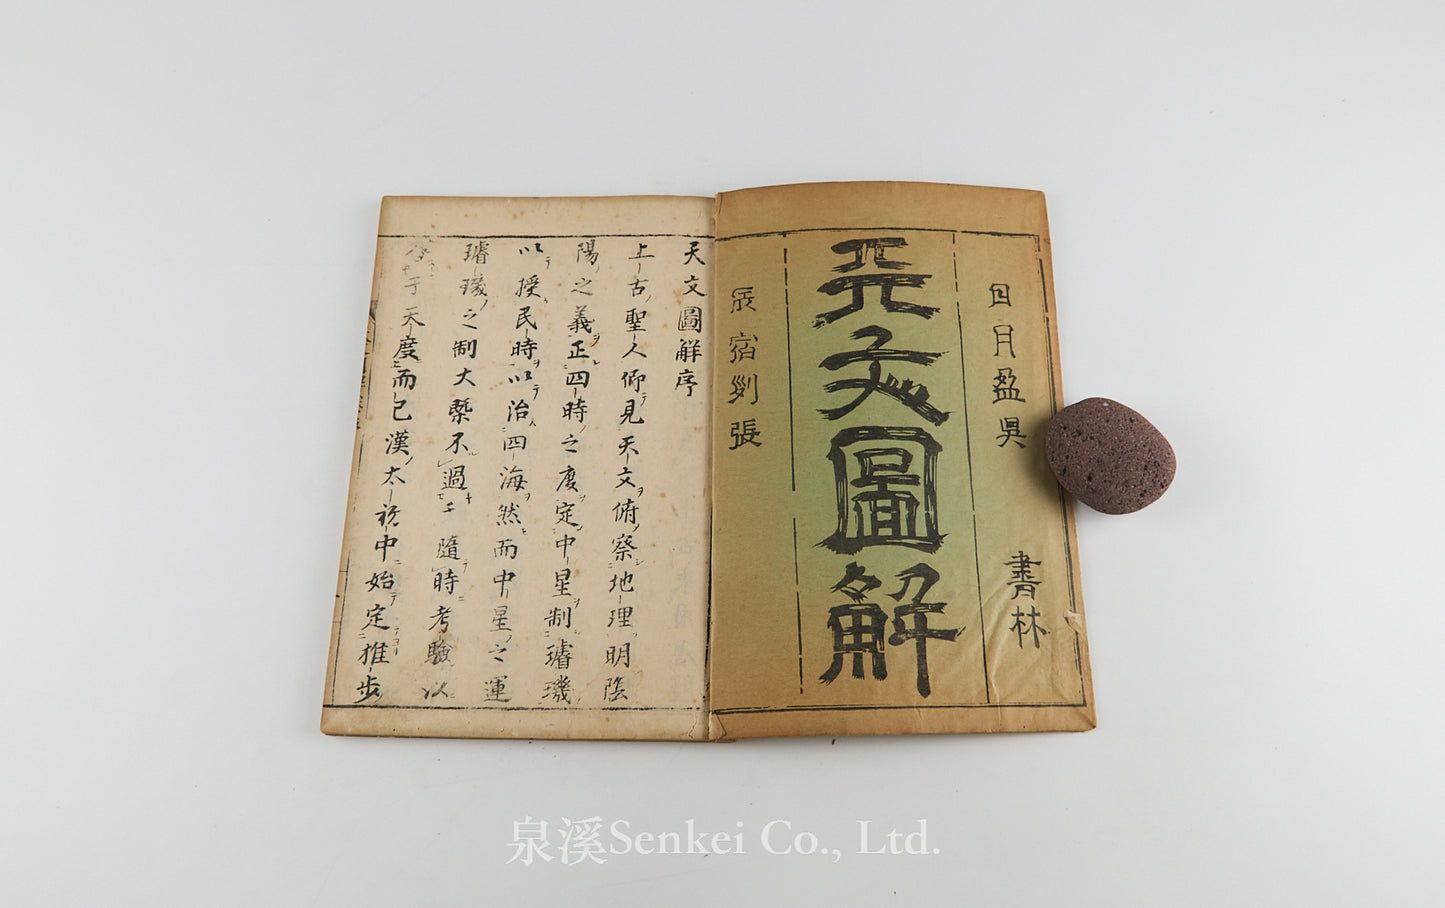 日月盈昃
書林
天文圖解
辰宿列張
天文圖解序
上古聖人仰見天文俯察地理明陰
陽之義正四時之度定中星制璿璣
以授民時以治四海然而中星之運
璿璣之制大槩不過乎隨時考驗以
于天度而已漢太初中始定推步
泉溪Senkei Co., Ltd.